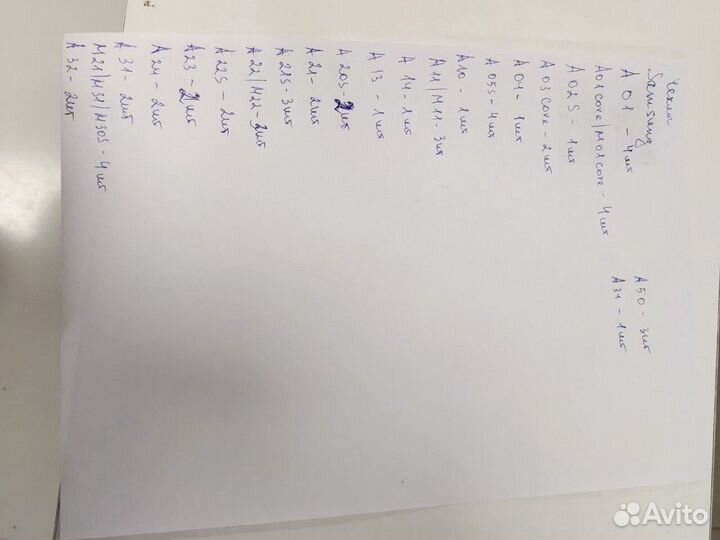 Чехлы
Samsung
A 01 - 4 шт
A01 core/M01 core - 4 шт
A 02 S - 1 шт
A 03 core - 2 шт
A 04 - 1 шт
A 05s - 4 шт
A10 - 1 шт
A11/M11 - 3 шт
A 14 - 1 шт
A 13 - 1 шт
A 20S - 2 шт
A 21 - 2 шт
A 21S - 3 шт
A 22/M22 - 2 шт
A 22S - 2 шт
A 23 - 2 шт
A 24 - 2 шт
A 31 - 2 шт
M21/M31/M30S - 4 шт
A 32 - 2 шт
A 50 - 3 шт
A 31 - 1 шт
Avito